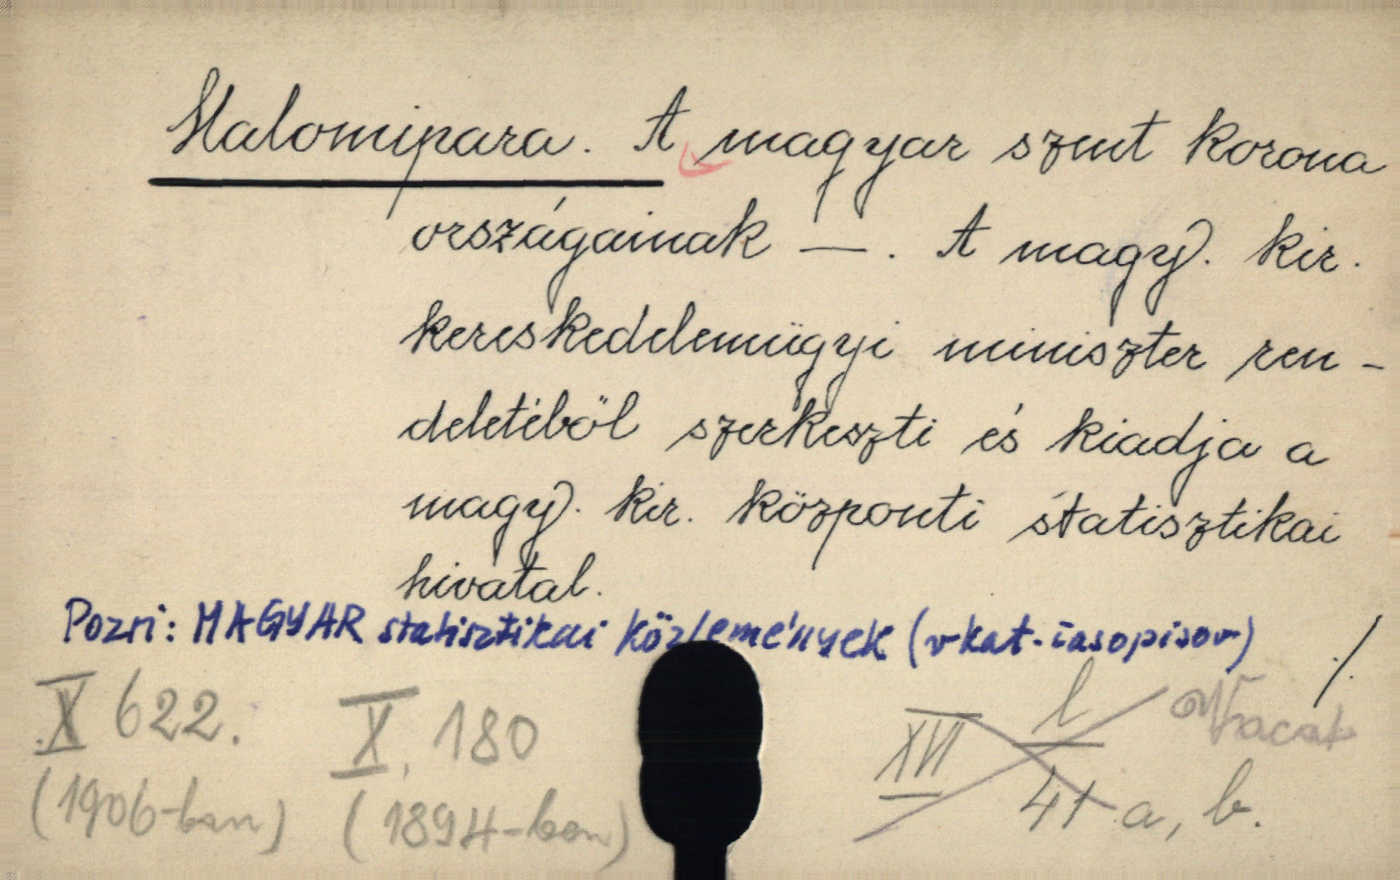 Malomipara. A magyar szent korona
országainak —. A magy. kir.
kereskedelemügyi miniszter ren-
deletéből szerkeszti és kiadja a
magy. kir. központi statisztikai
hivatal.
Pozri: MAGYAR statisztikai közlemények (v kat. časopisov)
X 622. X. 180
(1906-ban) (1894-ben)
XVI l 41 a, b.
Vracať